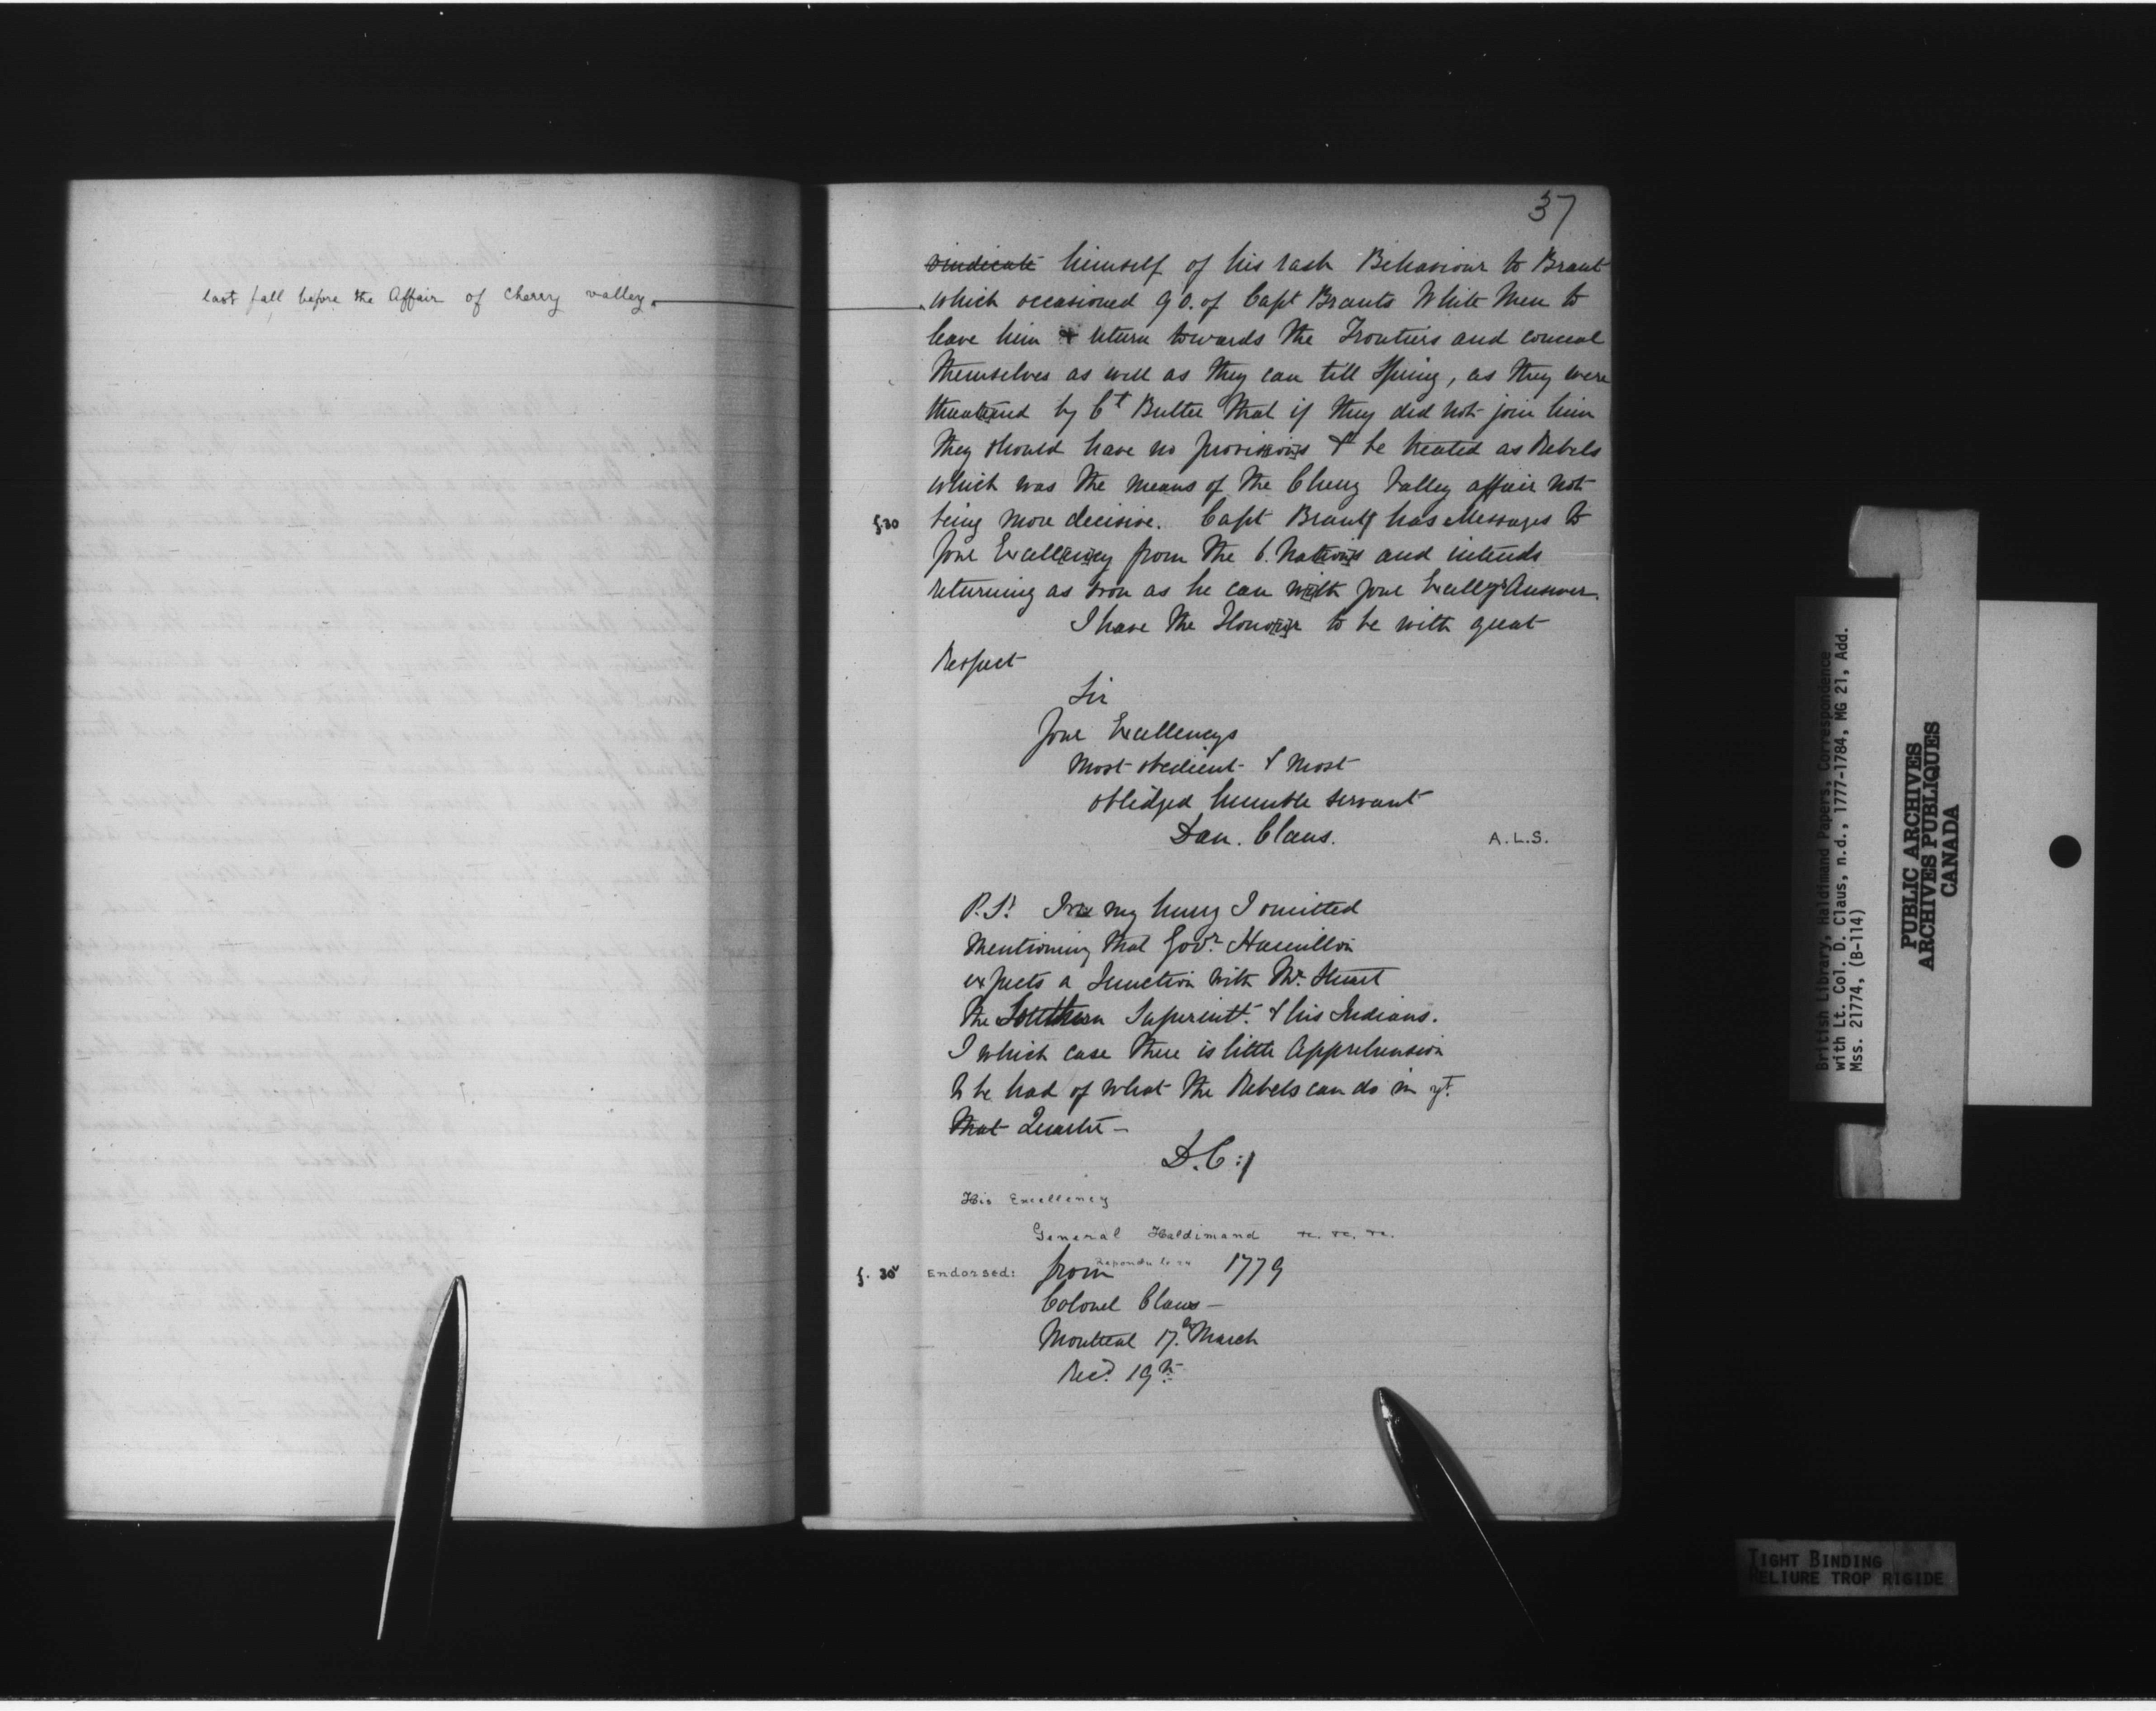 last fall before the Affair of Cherry valley.
37
vindicate himself of his rash Behaviour to Brant
which occasioned 90. of Capt Brants White Men to
leave him & return towards the Frontiers and conceal
themselves as well as they can till Spring, as they were
threatened by Ct Butler that if they did not join him
they should have no provisions & be treated as Rebels
which was the means of the Cherry Valley affair not
f.30 being more decisive. Capt Brant has Messages to
Your Excellency from the 6. Nations and intends
returning as soon as he can with your Excellys Answer.
I have the Honour to be with great
Respect
Sir
Your Excellencys
Most obedient & most
oblidged humble servant
Dan. Claus. A.L.S.
P.S: In my hurry I omitted
mentioning that Govr. Hamilton
expects a Junction with Mr. Stuart
the Southern Superintt. & his Indians.
I which case there is little Apprehension
to be had of what the Rebels can do in yt.
that Quarter -
D.C:/
His Excellency
General Haldimand &c. &c. &c.
f. 30v Endorsed: from 1779
Colonel Claus -
Montreal 17.th March
Recd. 19th
British Library, Haldimand Papers, Correspondence
with Lt. Col. D. Claus, n.d., 1777-1784, MG 21, Add.
Mss. 21774, (B-114)
PUBLIC ARCHIVES
ARCHIVES PUBLIQUES
CANADA
TIGHT BINDING
RELIURE TROP RIGIDE